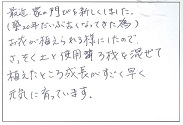 最近家の門びを新しくしました。
(築20年だいぶ古くなってきた為)
お花が植えられる様にしたので、
さっそく土と使用済み茶を混ぜて
植えたところ成長がすごく早く
元気に育っています。